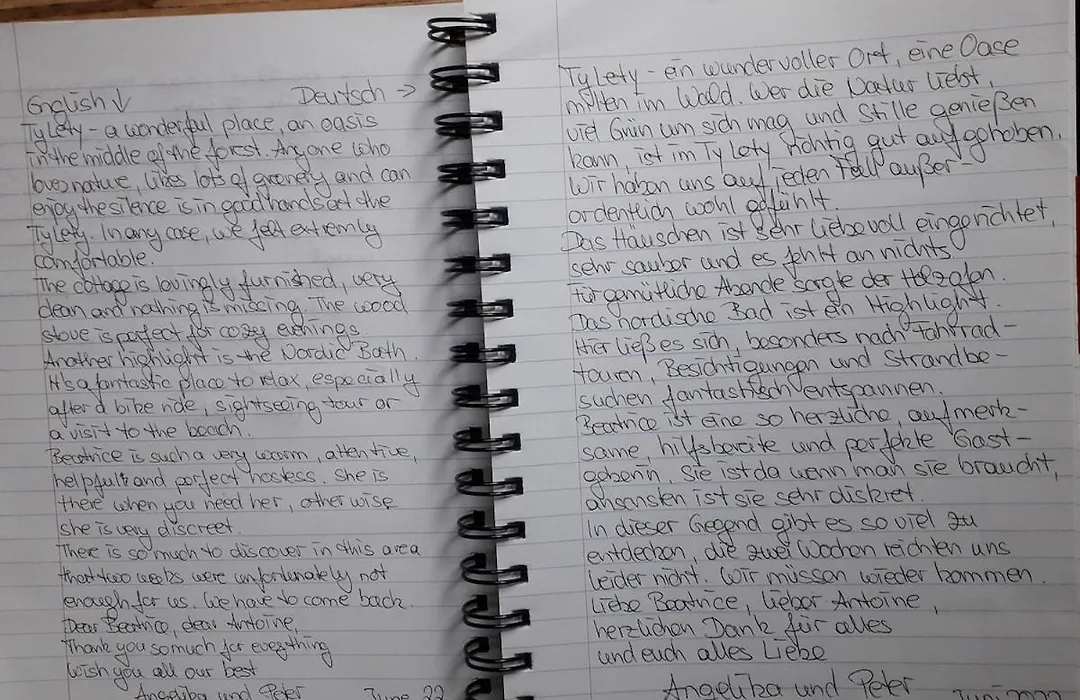 English ↓ Deutsch →
Ty Lety - a wonderful place, an oasis
in the middle of the forst. Anyone who
loves nature, likes lots of greenery and can
enjoy the silence is in good hands at the
Ty Lety. In any case, we felt extremly
comfortable.
The cottage is lovingly furnished, very
clean and nothing is missing. The wood
stove is perfect for cozy evenings.
Another highlight is the Nordic Bath.
It's a fantastic place to relax, especially
after a bike ride, sightseeing tour or
a visit to the beach.
Beatrice is such a very warm, attentive,
helpfull and perfect hostess. She is
there when you need her, other wise
she is very discreet.
There is so much to discover in this area
that two weeks were unfortunately not
enough for us. We have to come back.
Dear Beatrice, dear Antoine,
Thank you so much for everything
wish you all our best
Angelika und Peter June 22
Ty Lety - ein wundervoller Ort, eine Oase
mitten im Wald. Wer die Natur liebt,
viel Grün um sich mag und Stille genießen
kann, ist im Ty Lety richtig gut aufgehoben.
Wir haben uns auf jeden Fall außer-
ordentlich wohl gefühlt.
Das Häuschen ist sehr liebevoll eingerichtet,
sehr sauber und es fehlt an nichts.
Für gemütliche Abende sorgte der Holzofen.
Das nordische Bad ist ein Highlight.
Hier ließ es sich, besonders nach Fahrrad-
touren, Besichtigungen und Strandbe-
suchen fantastisch entspannen.
Beatrice ist eine so herzliche, aufmerk-
same, hilfsbereite und perfekte Gast-
geberin. Sie ist da wenn man sie braucht,
ansonsten ist sie sehr diskret.
In dieser Gegend gibt es so viel zu
entdecken, die zwei Wochen reichten uns
leider nicht. Wir müssen wieder kommen.
Liebe Beatrice, lieber Antoine,
herzlichen Dank für alles
und euch alles Liebe
Angelika und Peter